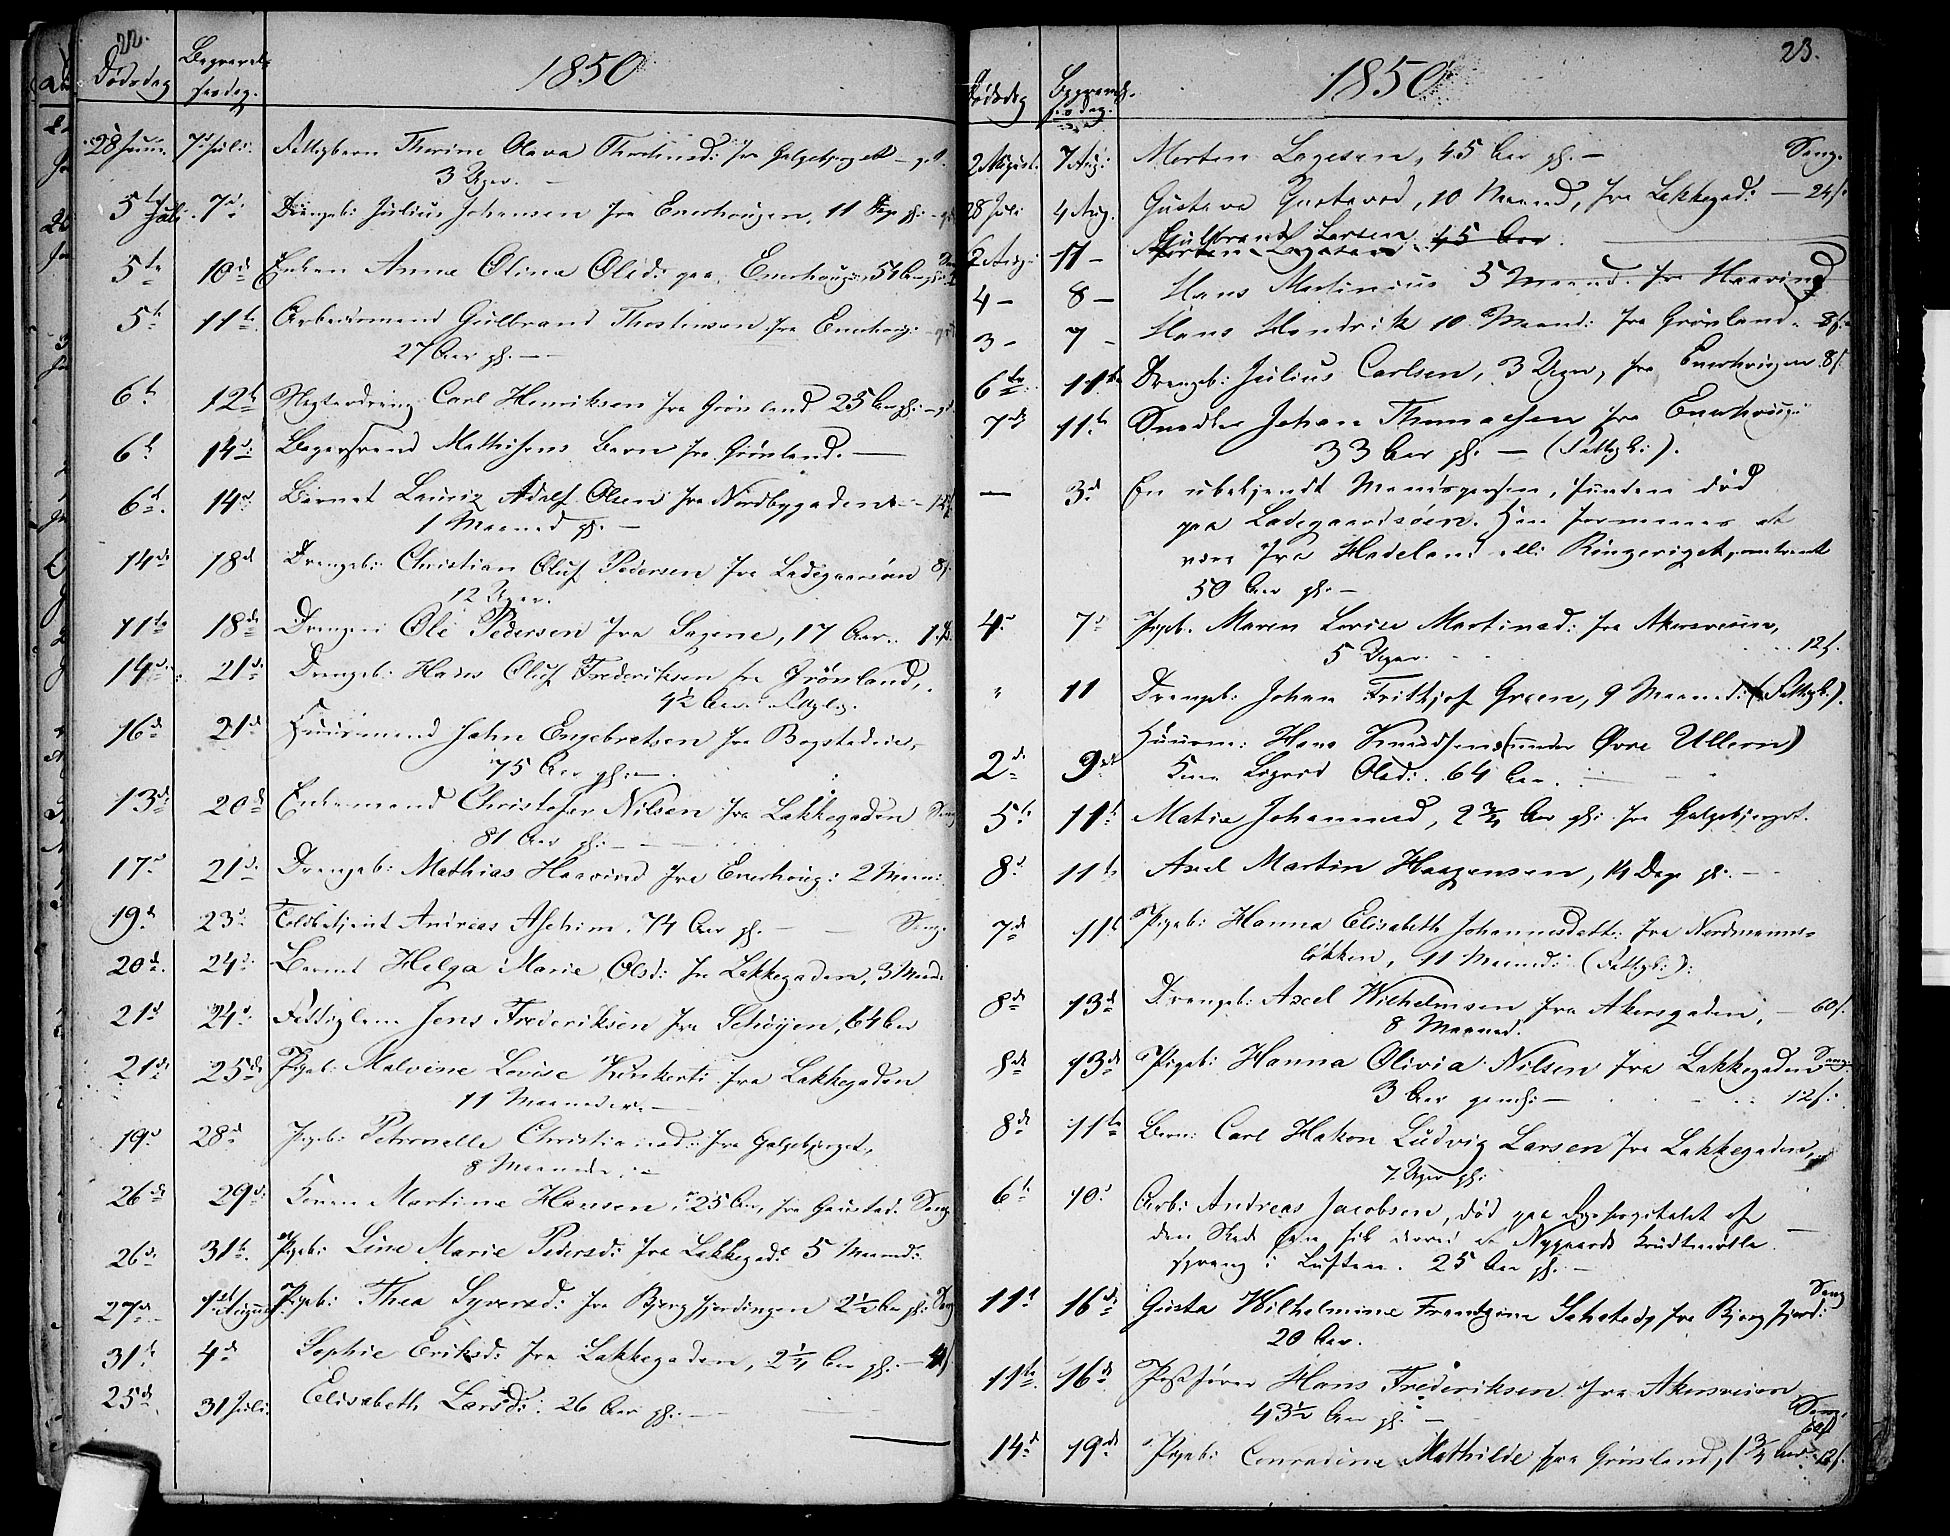 22.
Dødsdag Begravelsesdag. 1850
28 Juni. 7d Juli. Fattigbarn Thorine Olava Thorstensd: fra Galgebjerget
3 Uger. —
5te Juli. 7d: Drengeb: Julius Johansen fra Enerhougen, 11 gl:
5te 10d Enken Anne Oline Olsd: paa Enerhougen 54 Aar
5te 11te Arbeidsmand Gulbrand Thostensen fra Enerhoug:
27 Aar gl. —
6te 12te Slagterdreng Carl Henriksen fra Grønland 25 Aar gl:
6te 14d: Bagersvend Mathisens Barn fra Grønland. —
6te 14d Barnet Lauriz Adolf Olsen fra Nordbygaden
1 Maaned gl. —
14de 18d Drengeb: Christian Oluf Pedersen fra Ladegaarsøen 8/.
12 Uger.
11te 18de Drengen Ole Pedersen fra Sagene, 17 Aar.
14d: 21d: Drengeb: Hans Oluf Frederiksen fra Grønland,
4½ Aar.
16de 21d Huusmand John Engebretsen fra Bogstadeie,
75 Aar gl: —
13de 20de Enkemand Christofer Nilsen fra Lakkegaden Sang
81 Aar gl: —
17d 21d: Drengeb: Mathias Haavind fra Enerhoug: 2 Maan:
19d 23d: Toldbetjent Andreas Aschim, 74 Aar gl. — Sang.
20d. 24d: Barnet Helga Marie Olsd: fra Lakkegaden, 3 Maaned
21d 24d Fattiglem Jens Frederiksen fra Schøyen, 64 Aar
21d: 25de Pigeb: Malvine Lovise fra Lakkegaden
11 Maaneder. —
19d 28d Pigeb: Petronelle Christiansd: fra Galgebjerget,
8 Maaneder —
26de 29d: Konen Martine Hansen, 25 Aar, fra Gaustad. Sang
26d: 31te Pigeb: Line Marie Pedersd: fra Lakkegad: 5 Maaned:
27de 1ste August Pigeb: Thea Syversd: fra Bjergfjerdingen 2½ Aar gl: Sang
31te 4d Sophie Eriksd: fra Lakkegaden, 2¼ Aar gl. —
25de 31 Juli: Elisabeth Larsd: 26 Aar gl: —
23.
Dødsdag Begravelsesdag. 1850
2 August. 7 Aug: Morten Lagesen, 45 Aar gl. — Sang.
28 Juli 4 Aug. Gustava Gustavsd, 10 Maaned, fra Lakkegad: — 24/.
Gulbrand Larsen
6 Aug: 11 — Morten Lagesen 45 Aar.
4 — 8 — Hans Martinius 5 Maaned. fra Haavind
3 — 7 — Hans Hendrik 10 Maand: fra Grønland. 8/.
6te 11te Drengeb: Julius Carlsen, 3 Uger, fra Enerhougen 8/.
7de 11te Snedker Johan Thomasen fra Enerhoug:
33 Aar gl. — (Fattigk:).
— 3d En ubekjendt Mandsperson, funden død
paa Ladegaardsøen. Han formenes at
være fra Hadeland elle Ringeriget, omtrent
50 Aar gl. —
4d 7d Pigeb. Maren Lovise Martinsd: fra Akersveien,
5 Uger. 12/.
" 11 Drengeb: Johan Frithjof Green, 9 Maaned: (Fattigk:).
2de 9de Huusm: Hans Knudsens (under Øvre Ullern)
Kone Sigrid Olsd: 64 Aar.
5te 11te Matia Johannesd, 2¾ Aar gl: fra Galgebjerget.
8d 11te Axel Martin Haagensen, 14 Dage gl. —
7de 11te Pigeb: Hanna Elisabeth Johannesdatt: fra Nordmanns-
løkken, 11 Maaned: (Fattigk:).
8de 13de Drengeb: Axel Wilhelmsen fra Akersgaden, — 60/.
8 Maaned.
8de 13de Pigeb: Hanna Olivia Nilsen fra Lakkegaden Sang.
3 Aar 12/.
8de 11te Barn: Carl Hakon Ludvig Larsen fra Lakkegaden,
7 Uger gl:
6te 10d Arb: Andreas Jacobsen, død paa Sygehospitalet af
den Skade han fik derved at Nygaards Krudtmølle
sprang i Luften. 25 Aar gl. —
11te 16de Gusta Wilhelmine Frantzine fra Bjergfjerd: Sang
20 Aar.
11te 16de Postfører Hans Frederiksen fra Akersveien
43½ Aar gl. — Sang.
14d 19de Pigeb: Conradine Mathilde fra Grønland, 1¾ Aar 12/.